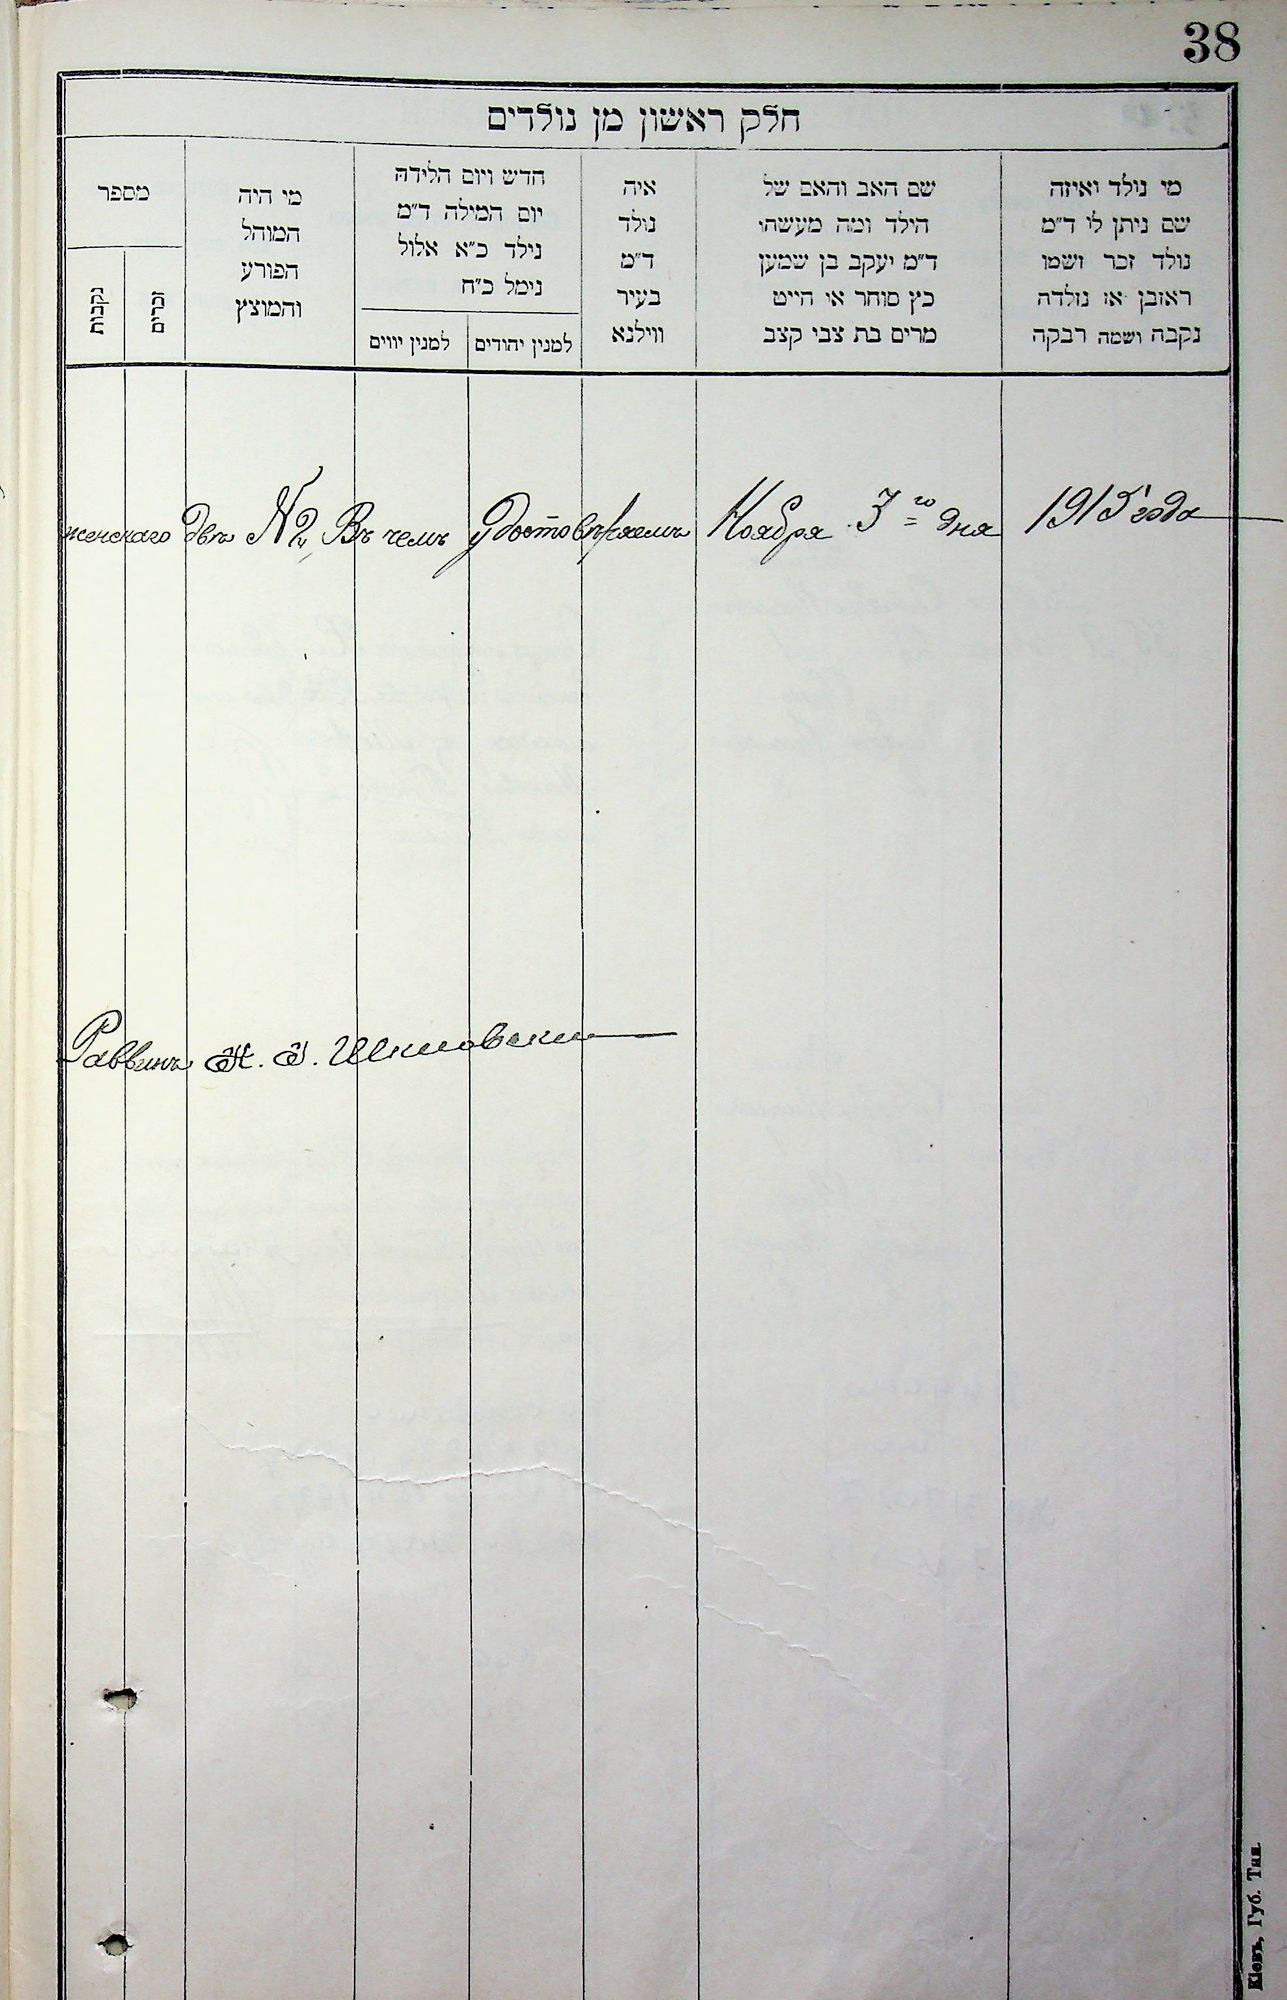 38
חלק ראשון מן נולדים
מי נולד ואיזה
שם ניתן לו ד"מ
נולד זכר ושמו
ראובן או נולדה
נקבה ושמה רבקה
שם האב והאם של
הילד ומה מעשהו
ד"מ יעקב בן שמעון
כץ סוחר או חייט
מרים בת צבי קצב
איה
נולד
ד"מ
בעיר
ווילנא
חדש ויום הלידה
יום המילה ד"מ
נילד כ"א אלול
נימל כ"ח
למנין יהודים
למנין יווים
מי היה
המוהל
הפורע
והמוצץ
מספר
זכרים
נקבות
женскаго двѣ № 2, Въ чемъ удостовѣряемъ Ноября 3го дня 1915 года
Раввинъ
Кіевъ, Губ. Тип.